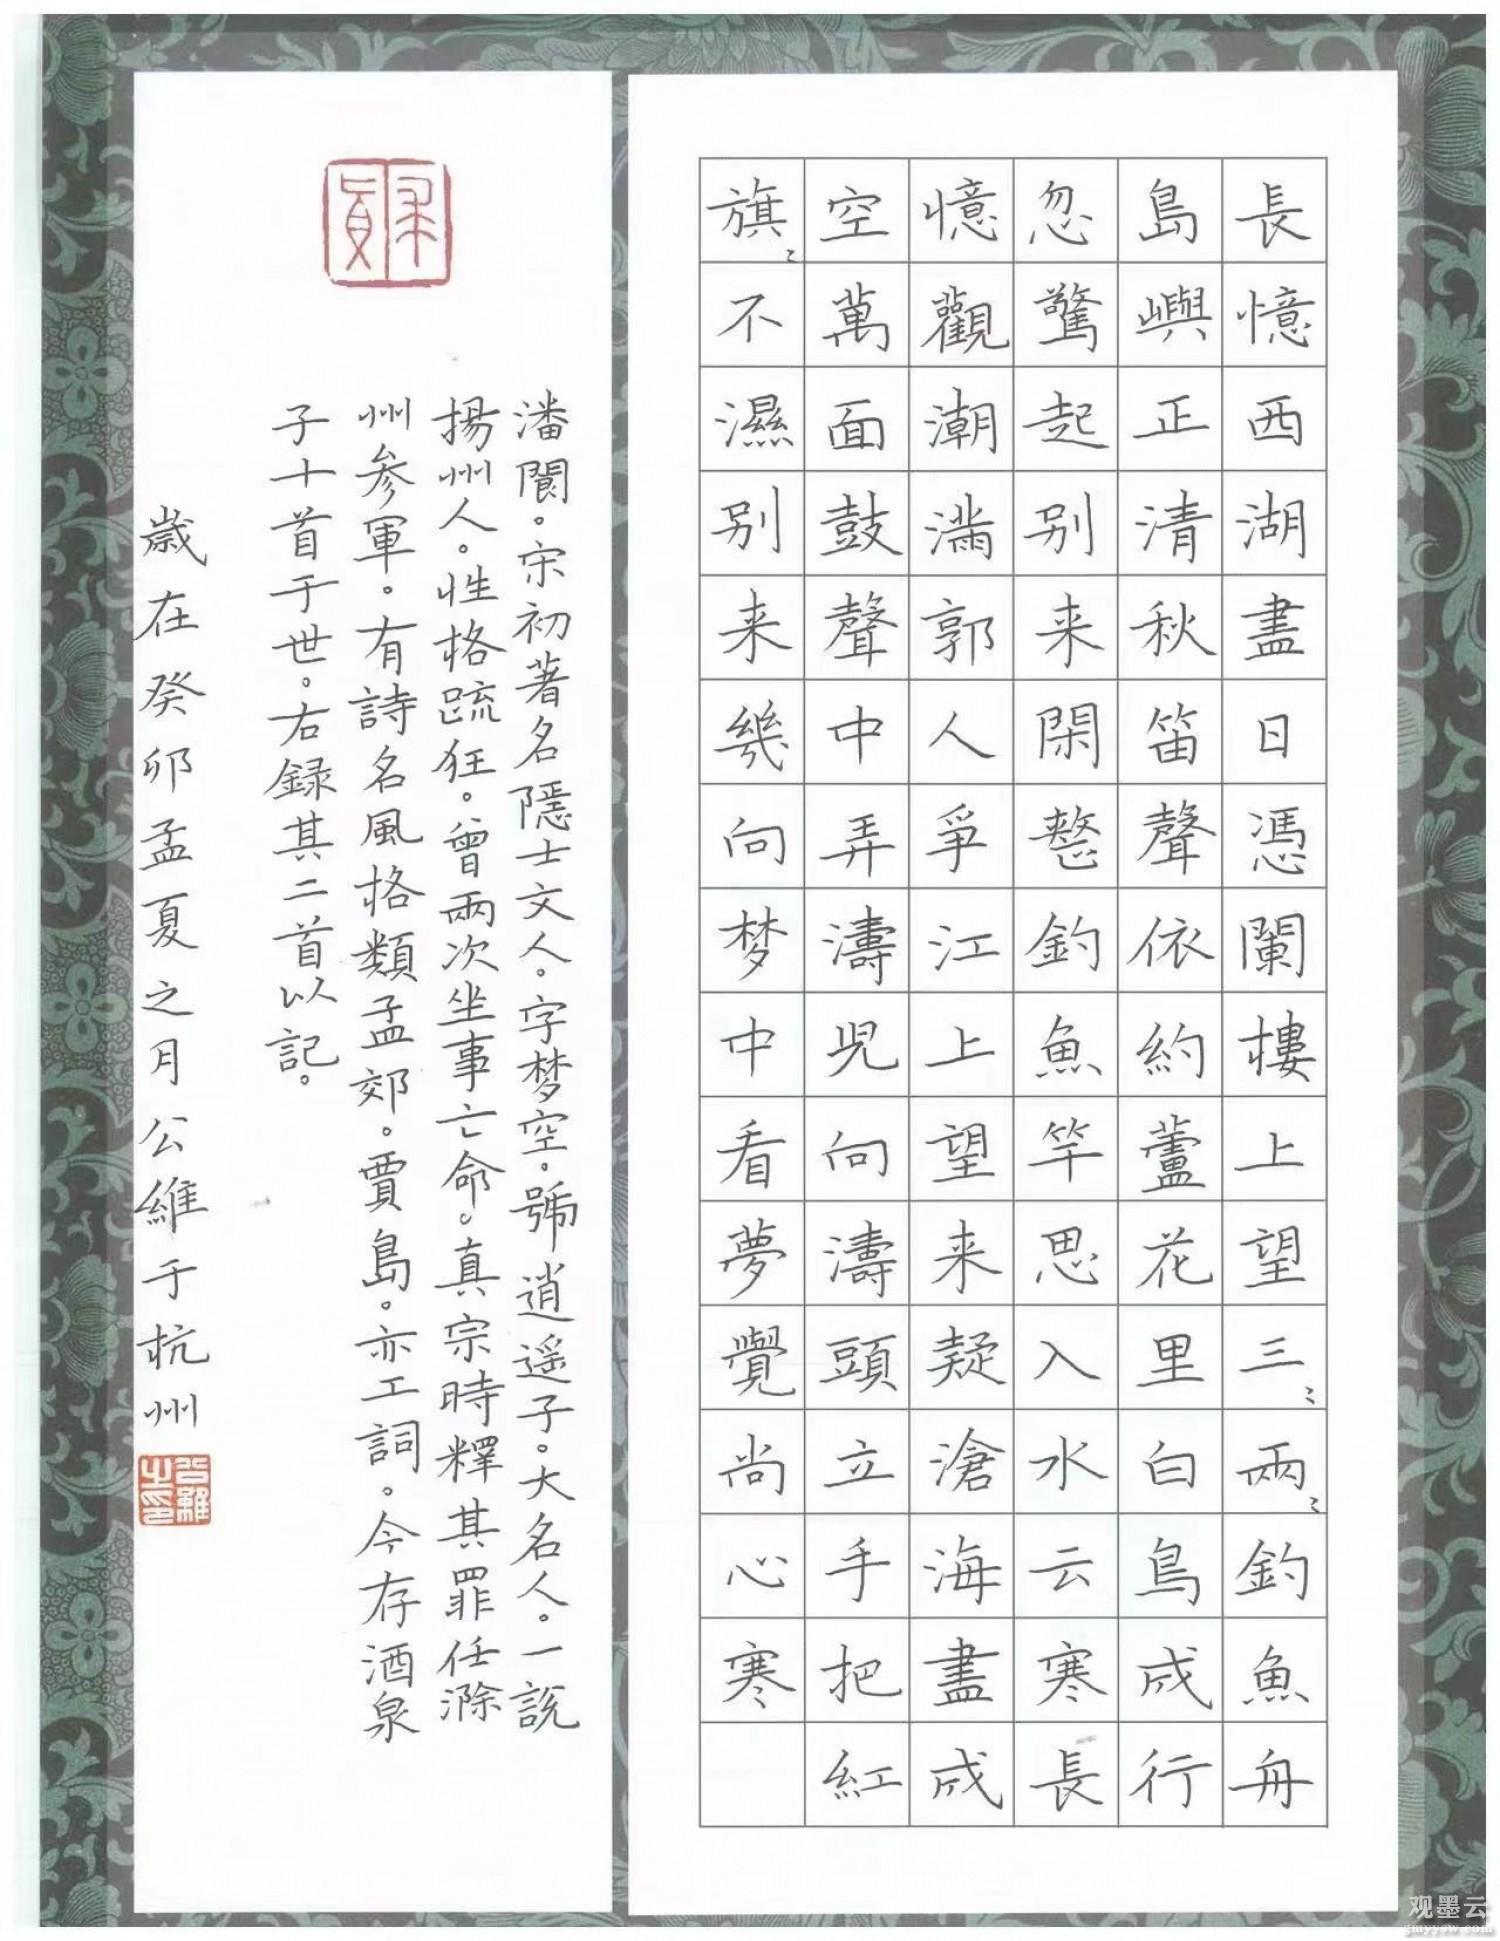 長憶西湖盡日憑闌樓上望三〻兩〻釣魚舟
島嶼正清秋笛聲依約蘆花里白鳥成行
忽驚起别来閑整釣魚竿思入水云寒長
憶觀潮滿郭人爭江上望来疑滄海盡成
空萬面鼓聲中弄濤兒向濤頭立手把紅
旗〻不濕别来幾向梦中看夢覺尚心寒
潘閬。宋初著名隱士文人。字梦空。號逍遥子。大名人。一説
揚州人。性格疏狂。曾兩次坐事亡命。真宗時釋其罪任滁
州参軍。有詩名風格類孟郊。賈島。亦工詞。今存酒泉
子十首于世。右録其二首以記。
歲在癸卯孟夏之月公維于杭州
公維之印
观墨云
gmyysw.com